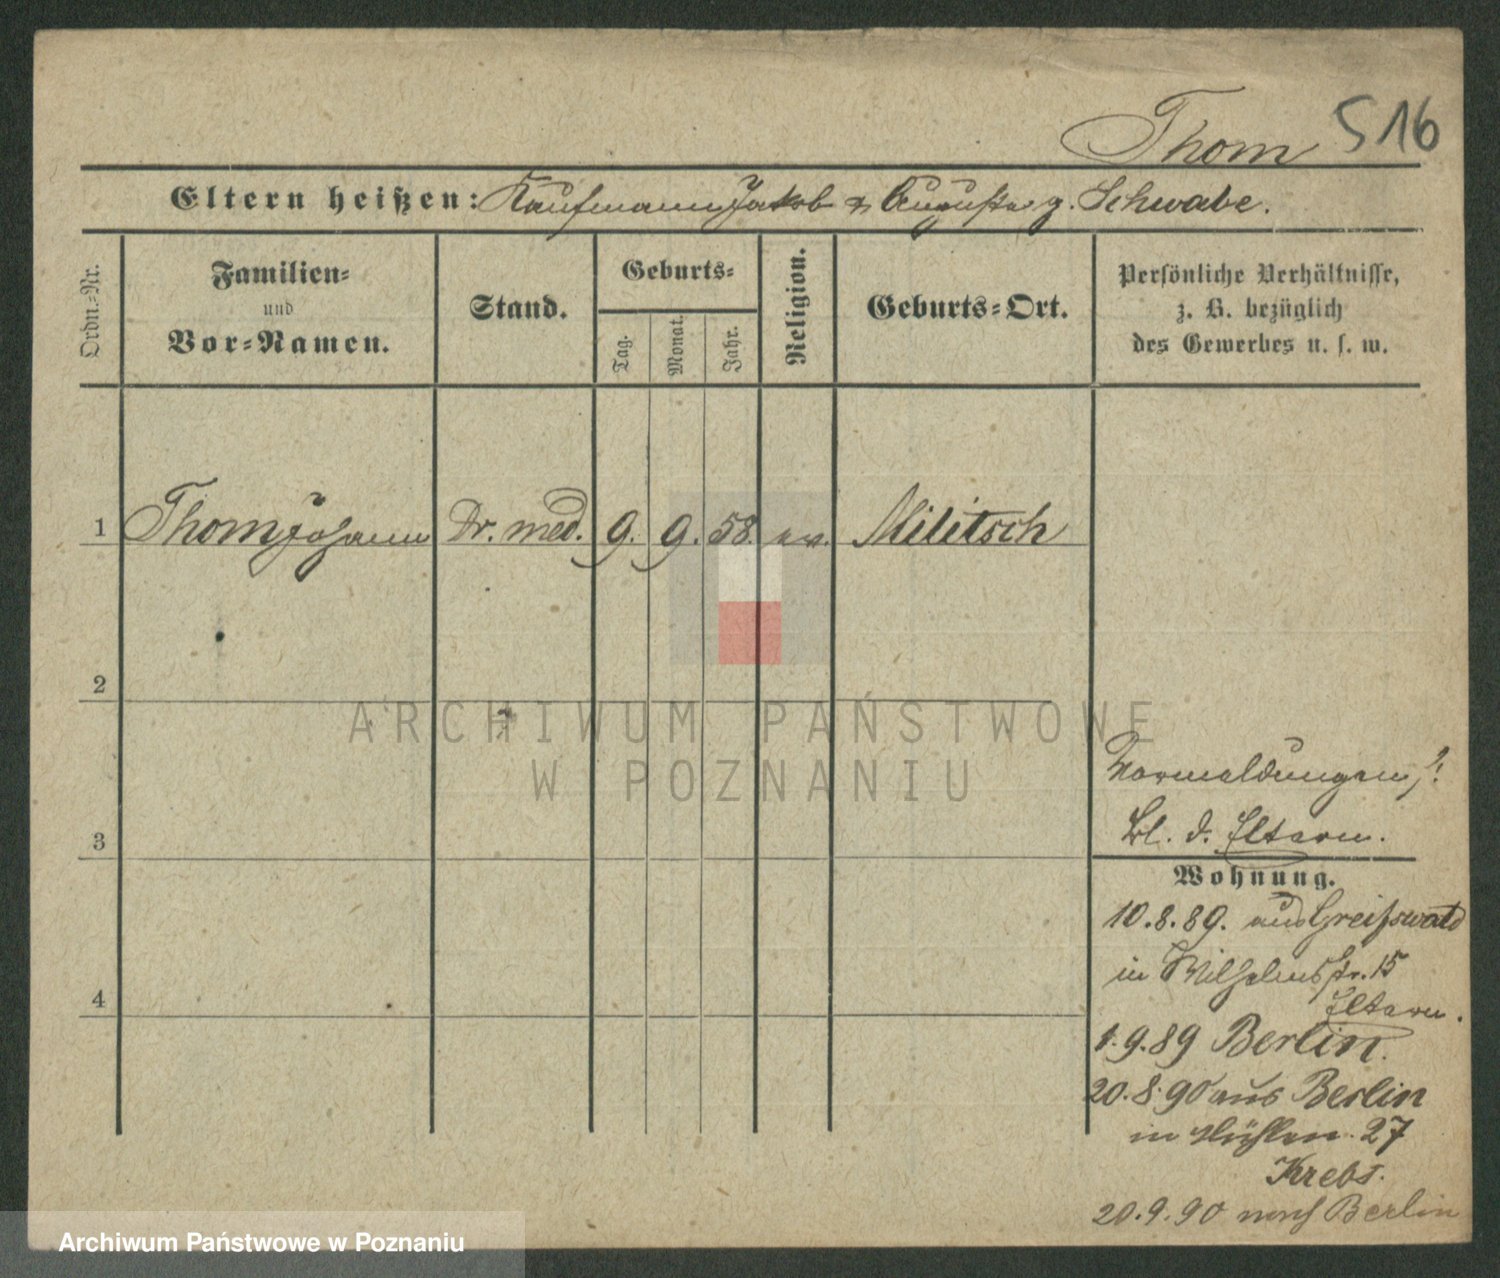 Thom 516
Eltern heißen: Kaufmann Jakob & Auguste g. Schwabe.
Ordn.=Nr.
Familien=
und
Vor=Namen.
Stand.
Geburts=
Tag.
Monat.
Jahr.
Religion.
Geburts=Ort.
Persönliche Verhältnisse,
z. B. bezüglich
des Gewerbes u. s. w.
1 Thom Johann Dr. med. 9. 9. 58. ev. Militsch
2
3
4
Vormeldungen,
Bl. d. Eltern.
Wohnung.
10.8.89. aus Greifswald
in Wilhelmsstr. 15
Eltern.
1.9.89 Berlin.
20.8.90 aus Berlin
in Mühlen. 27
Krebs.
20.9.90 nach Berlin
ARCHIWUM PAŃSTWOWE
W POZNANIU
Archiwum Państwowe w Poznaniu